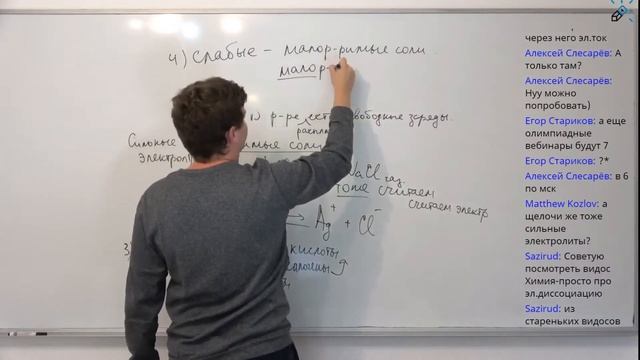 4) Слабые – малор-римые соли.
малор-
р-ре есть свободные заряды.
распла
Сильные
электрол
римые соли
NaCl газ.
тоже считаем
считаем электр
⇄ Ag⁺ + Cl⁻
3)
кислоты
через него эл.ток
Алексей Слесарёв: А
только там?
Алексей Слесарёв:
Нуу можно
попробовать)
Егор Стариков: а еще
олимпиадные
вебинары будут 7
Егор Стариков: ?*
Алексей Слесарёв: в 6
по мск
Matthew Kozlov: а
щелочи же тоже
сильные
электролиты?
Sazirud: Советую
посмотреть видос
Химия-просто про
эл.диссоциацию
Sazirud: из
стареньких видосов